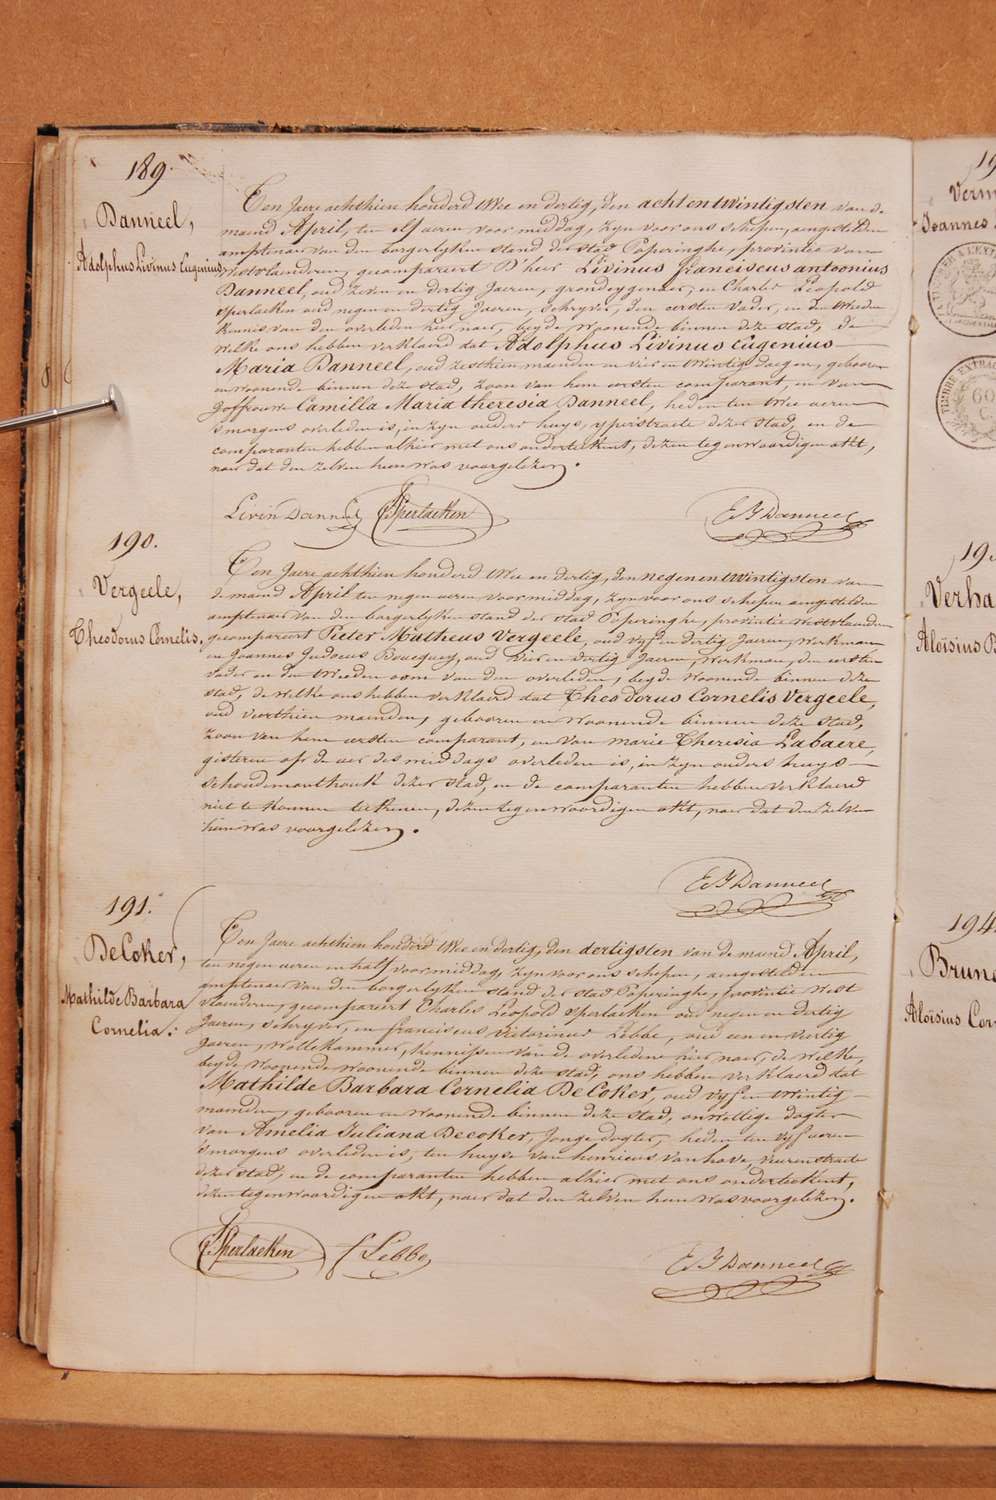 189.
Danneel,
Adolphus Livinus Eugenius
Ten Jaere achthien honderd twee en dertig, den acht en twintigsten van de
maend April, ten elf ueren voor middag, zyn voor ons schepen, aengestelden
amptenaer van den borgerlyken stand der stad Poperinghe, provincie van
Westvlaenderen, gecompareert D'heer Livinus franciscus antoonius
Danneel, oud zeven en dertig Jaeren, grondeygenaer, en Charles Leopold
Sperlaeken oud negen en dertig Jaeren, schryver, den eersten vader, en den tweeden
kennis van den overleden hier naer, beyde woonende binnen deze stad, de
welke ons hebben verklaerd dat Adolphus Livinus Eugenius
Maria Danneel, oud zesthien maenden en vier en twintig daegen, gebooren
en woonende binnen deze stad, zoon van hem eersten comparant, en van
Joffrouw Camilla Maria theresia Danneel, heden ten twee ueren
s'morgens overleden is, in zyn ouders huys, yperstraete dezer stad, en de
comparanten hebben alhier met ons onderteekent, dezen tegenwoordigen akt,
naer dat den zelven hun was voorgelezen.
Livin Danneel Sperlaeken E J Danneel
190.
Vergeele,
Theodorus Cornelis,
Ten Jaere achthien honderd twee en dertig, den negen en twintigsten van
de maend April ten negen ueren voormiddag, zyn voor ons schepen aengestelden
amptenaer van den borgerlyken stand der stad Poperinghe, provintie Westvlaenderen
gecompareert Pieter Matheus Vergeele, oud vyf en dertig Jaeren, werkman
en Joannes Judocus Boucquey, oud vier en dertig Jaeren, werkman, den eersten
vader en den tweeden oom van den overleden, beyde woonende binnen deze
stad, de welke ons hebben verklaerd dat Theodorus Cornelis Vergeele,
oud vierthien maenden, gebooren en woonende binnen deze stad,
zoon van hem eersten comparant, en van marie Theresia Labaere,
gisteren op de uer des middags overleden is, in zyn ouders huys
Schoudemonthoek dezer stad, en de comparanten hebben verklaerd
niet te konnen teekenen, dezen tegenwoordigen akt, naer dat den zelven
hun was voorgelezen.
E J Danneel
191.
De Coker,
Mathilde Barbara
Cornelia.
Ten Jaere achthien honderd twee en dertig, den dertigsten van de maend April,
ten negen ueren en half voor middag, zyn voor ons schepen, aengestelden
amptenaer van den borgerlyken stand der stad Poperinghe, provintie West
vlaenderen, gecompareert Charles Leopold Sperlaeken oud negen en dertig
Jaeren, schryver, en franciscus victorinus Lebbe, oud een en veertig
Jaeren, wollekammer, kennissen van de overledene hier naer, de welke,
beyde woonende woonende binnen deze stad, ons hebben verklaerd dat
Mathilde Barbara Cornelia De Coker, oud vyf en twintig
maenden, gebooren en woonende binnen deze stad, onwettige dogter
van Amelia Juliana Decoker, Jonge dogter, heden ten vyf ueren
s'morgens overleden is, ten huyse van henricus vanhove, veurenstraete
dezer stad, en de comparanten hebben alhier met ons onderteekent,
dezen tegenwoordigen akt, naer dat den zelven hun was voorgelezen.
Sperlaeken f Lebbe E J Danneel
Joannes
TIMBRE EXTRA
60
C
Verha
Aloïsius B
194
Brun
Aloïsius Cor